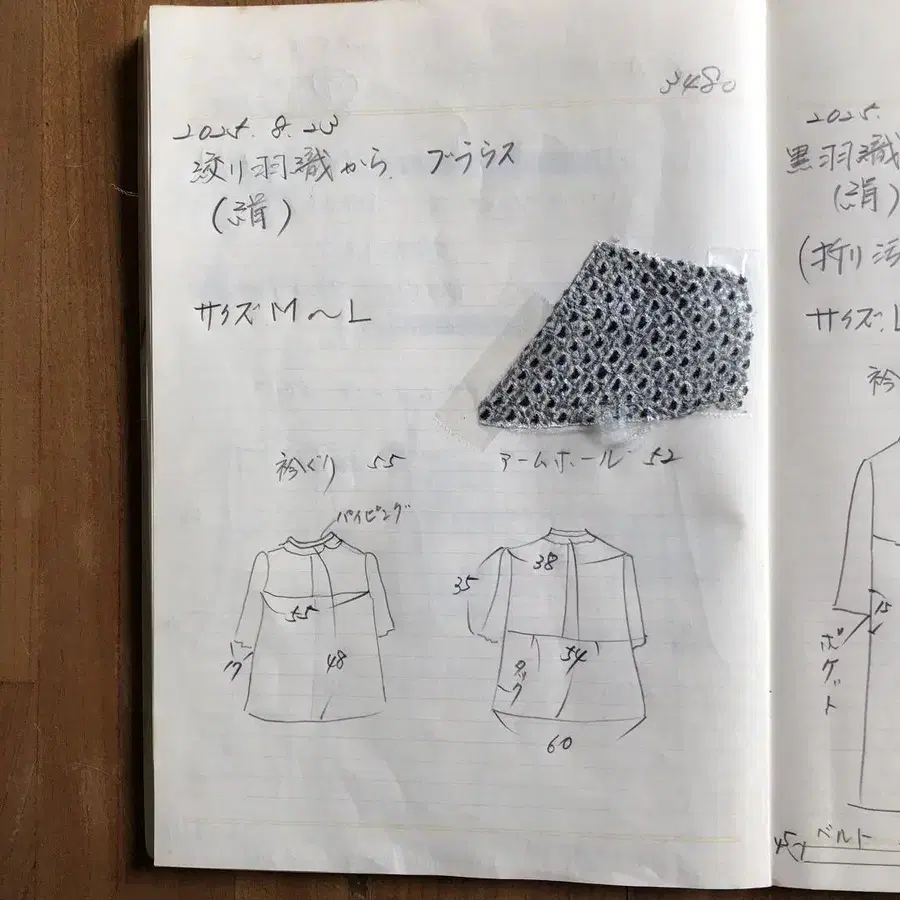 3480
2025.8.23
絞り羽織から ブラウス
(絹)
サイズ M〜L
衿ぐり 55
アームホール 52
パイピング
55
48
17
38
35
54
タック
60
2025.
黒羽織
(絹)
サイズ L
衿
15
ポケット
ベルト